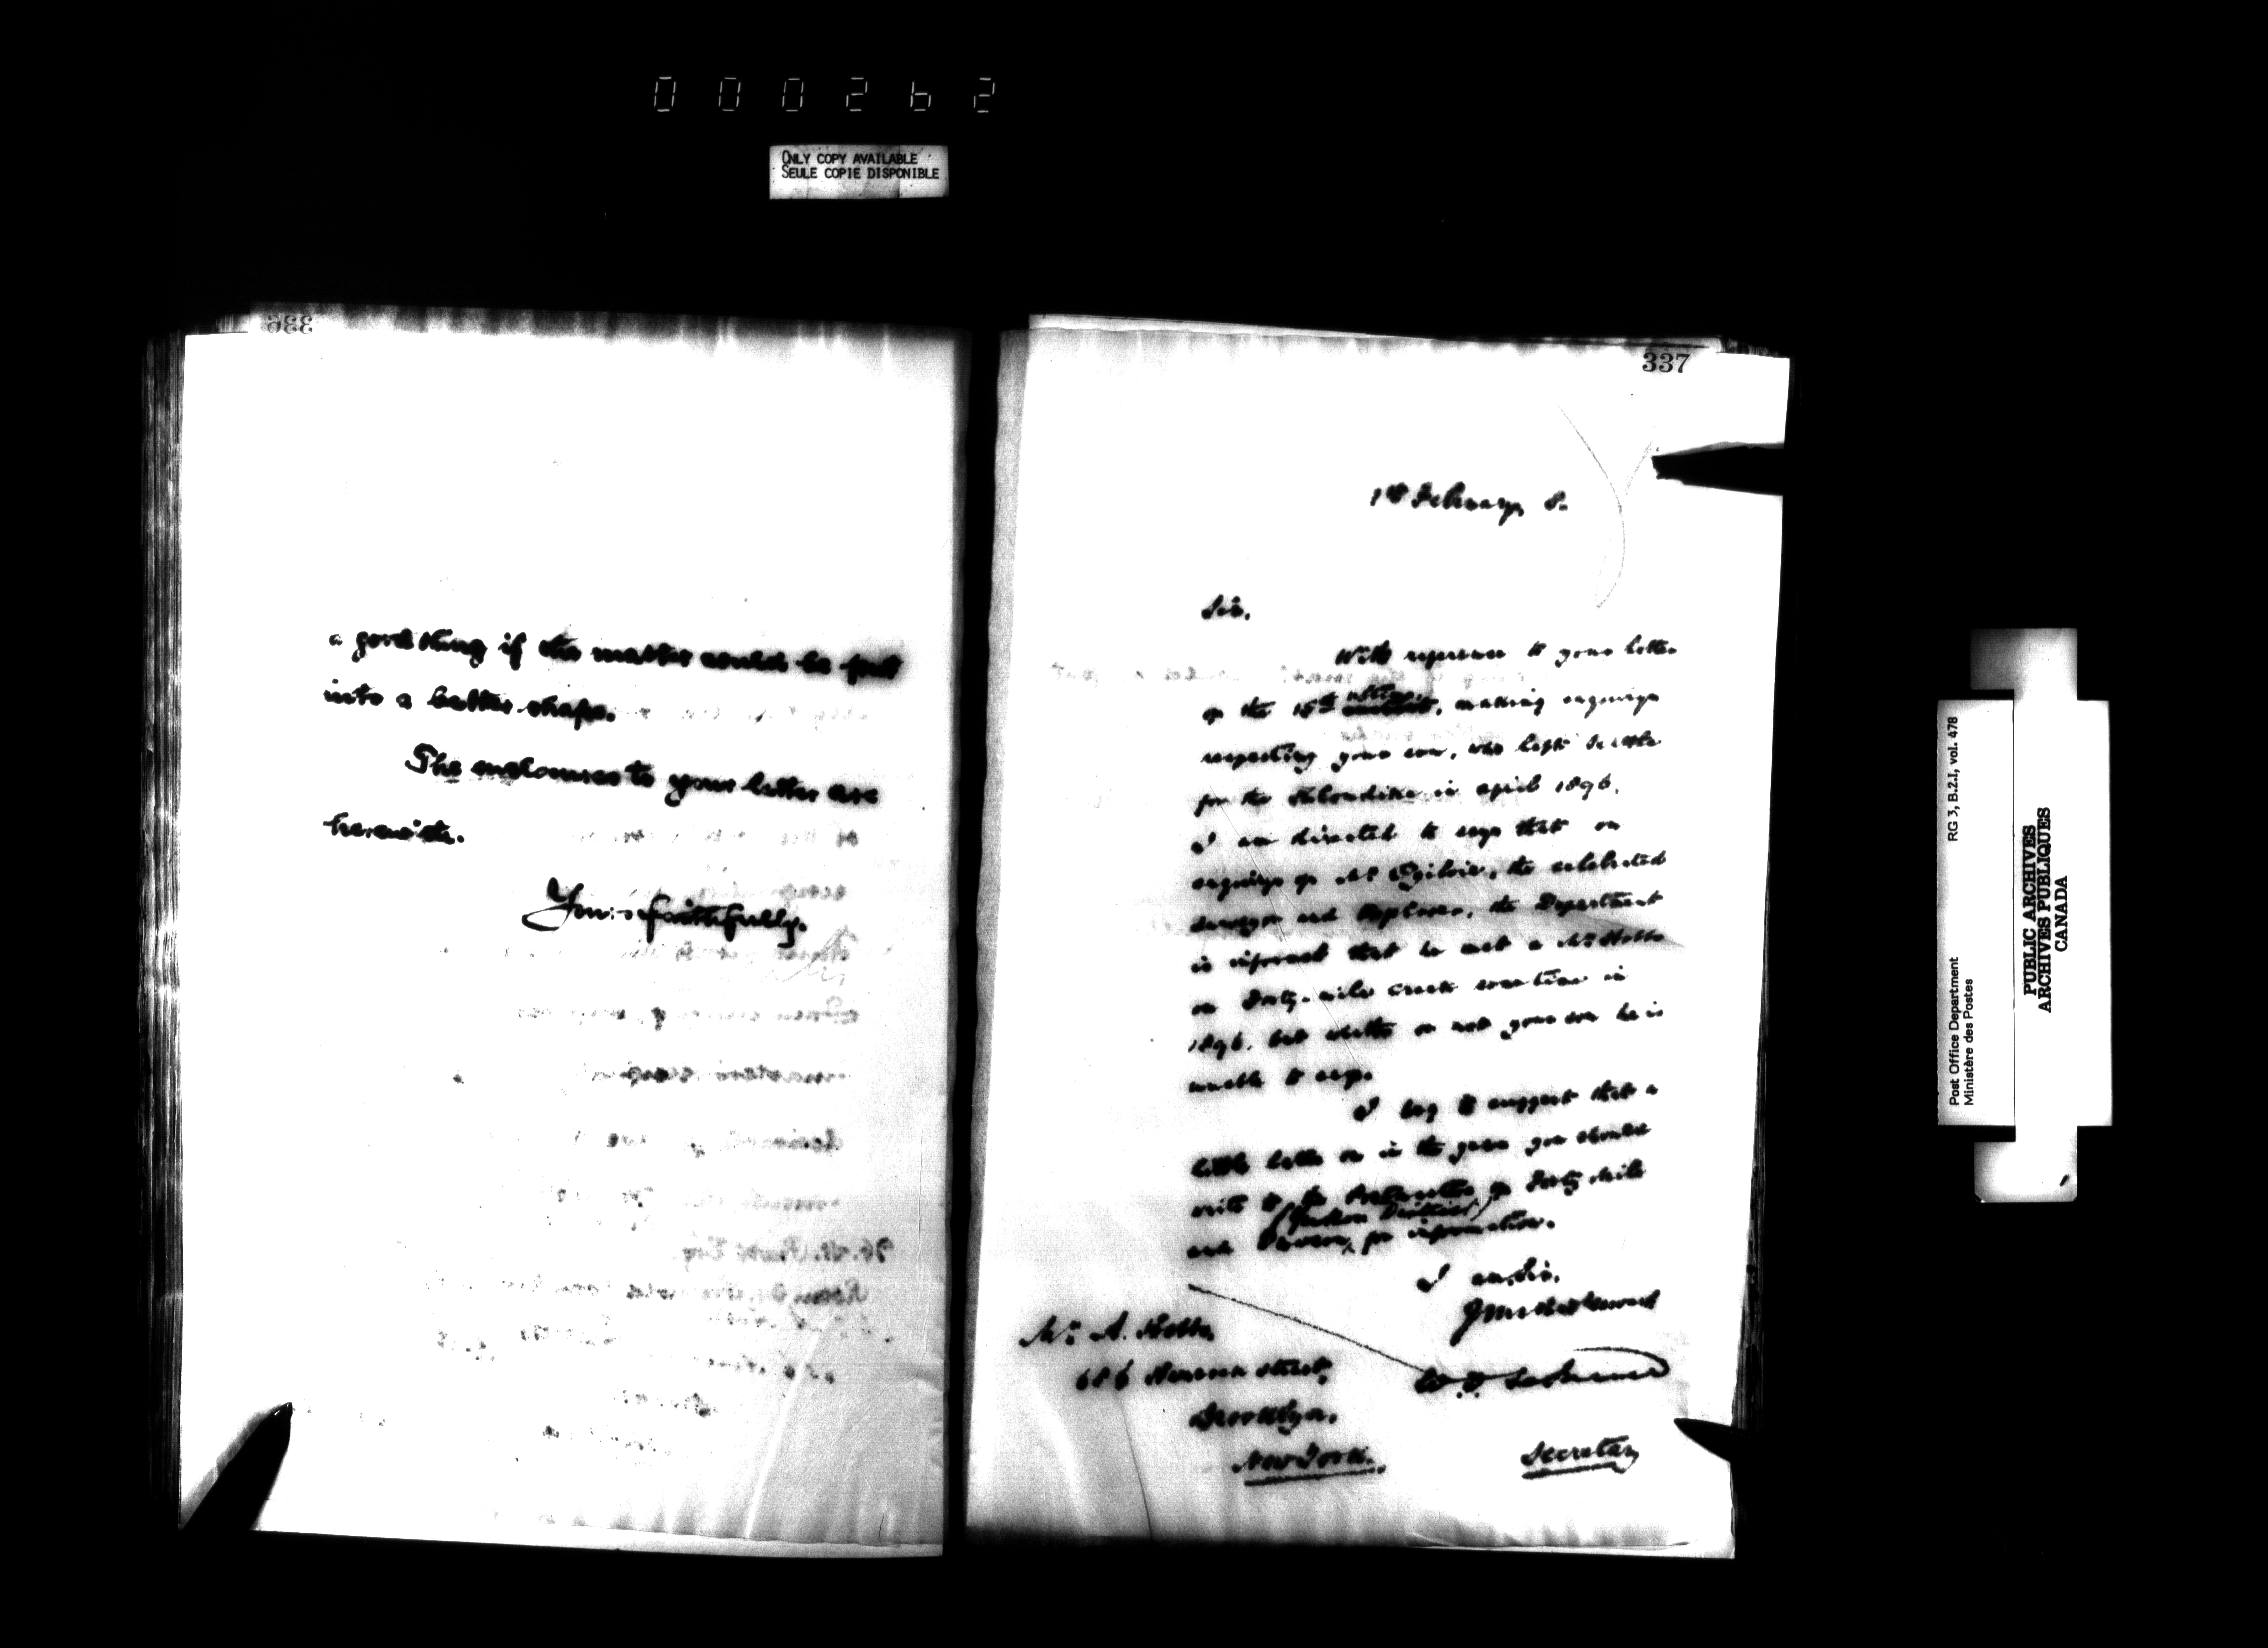 000262
ONLY COPY AVAILABLE
SEULE COPIE DISPONIBLE
336
a good thing if the matter could be put
into a better shape.
The enclosures to your letter are
herewith.
Yours faithfully.
337
1st February, 8.
Sir,
With reference to your letter
of the 15th ultimo, making enquiry
respecting your son, who left Seattle
for the Klondike in April 1896,
I am directed to say that on
enquiry of Mr Ogilvie, the celebrated
surveyor and Explorer, the Department
is informed that he met a Mr
on Forty-mile Creek some time in
1896, but whether or not your son he is
unable to say.
I beg to suggest that a
little later on in the year you should
write to the Postmaster of Forty Mile
(Yukon District)
and Dawson, for information.
I am, Sir,
Mr A.
686 Street,
Brooklyn,
New York.
Secretary
Post Office Department RG 3, B.2.I, vol. 478
Ministère des Postes
PUBLIC ARCHIVES
ARCHIVES PUBLIQUES
CANADA